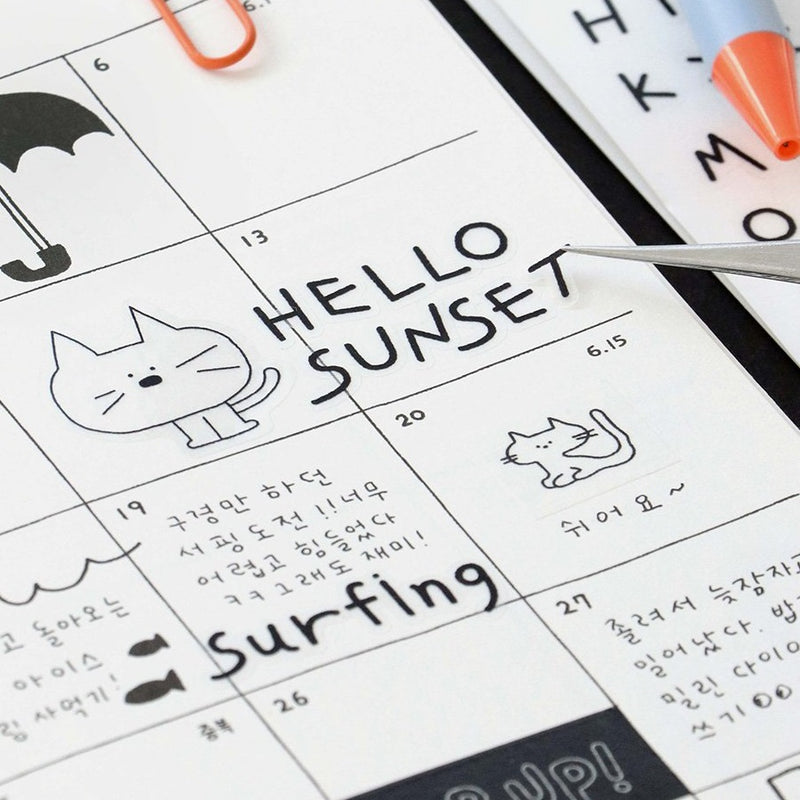 6.1
6
13
HELLO
SUNSET
6.15
20
쉬어요~
19
구경만 하던
서핑도전!!너무
어렵고 힘들었다
ㅋㅋ그래도 재미!
surfing
고 돌아오는
아이스
링 사먹기!
중복
26
UP!
27
졸려서 늦잠자고
일어났다. 밥
밀린 다이어
쓰기
H
K
M
O